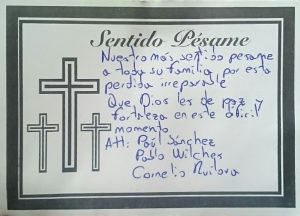 Sentido Pésame
Nuestro más sentido pesame
a toda su familia por esta
perdida irreparable
Que Dios les de paz y
fortaleza en este dificil
momento
Att: Paúl Sánchez
Pablo Wilches
Cornelio